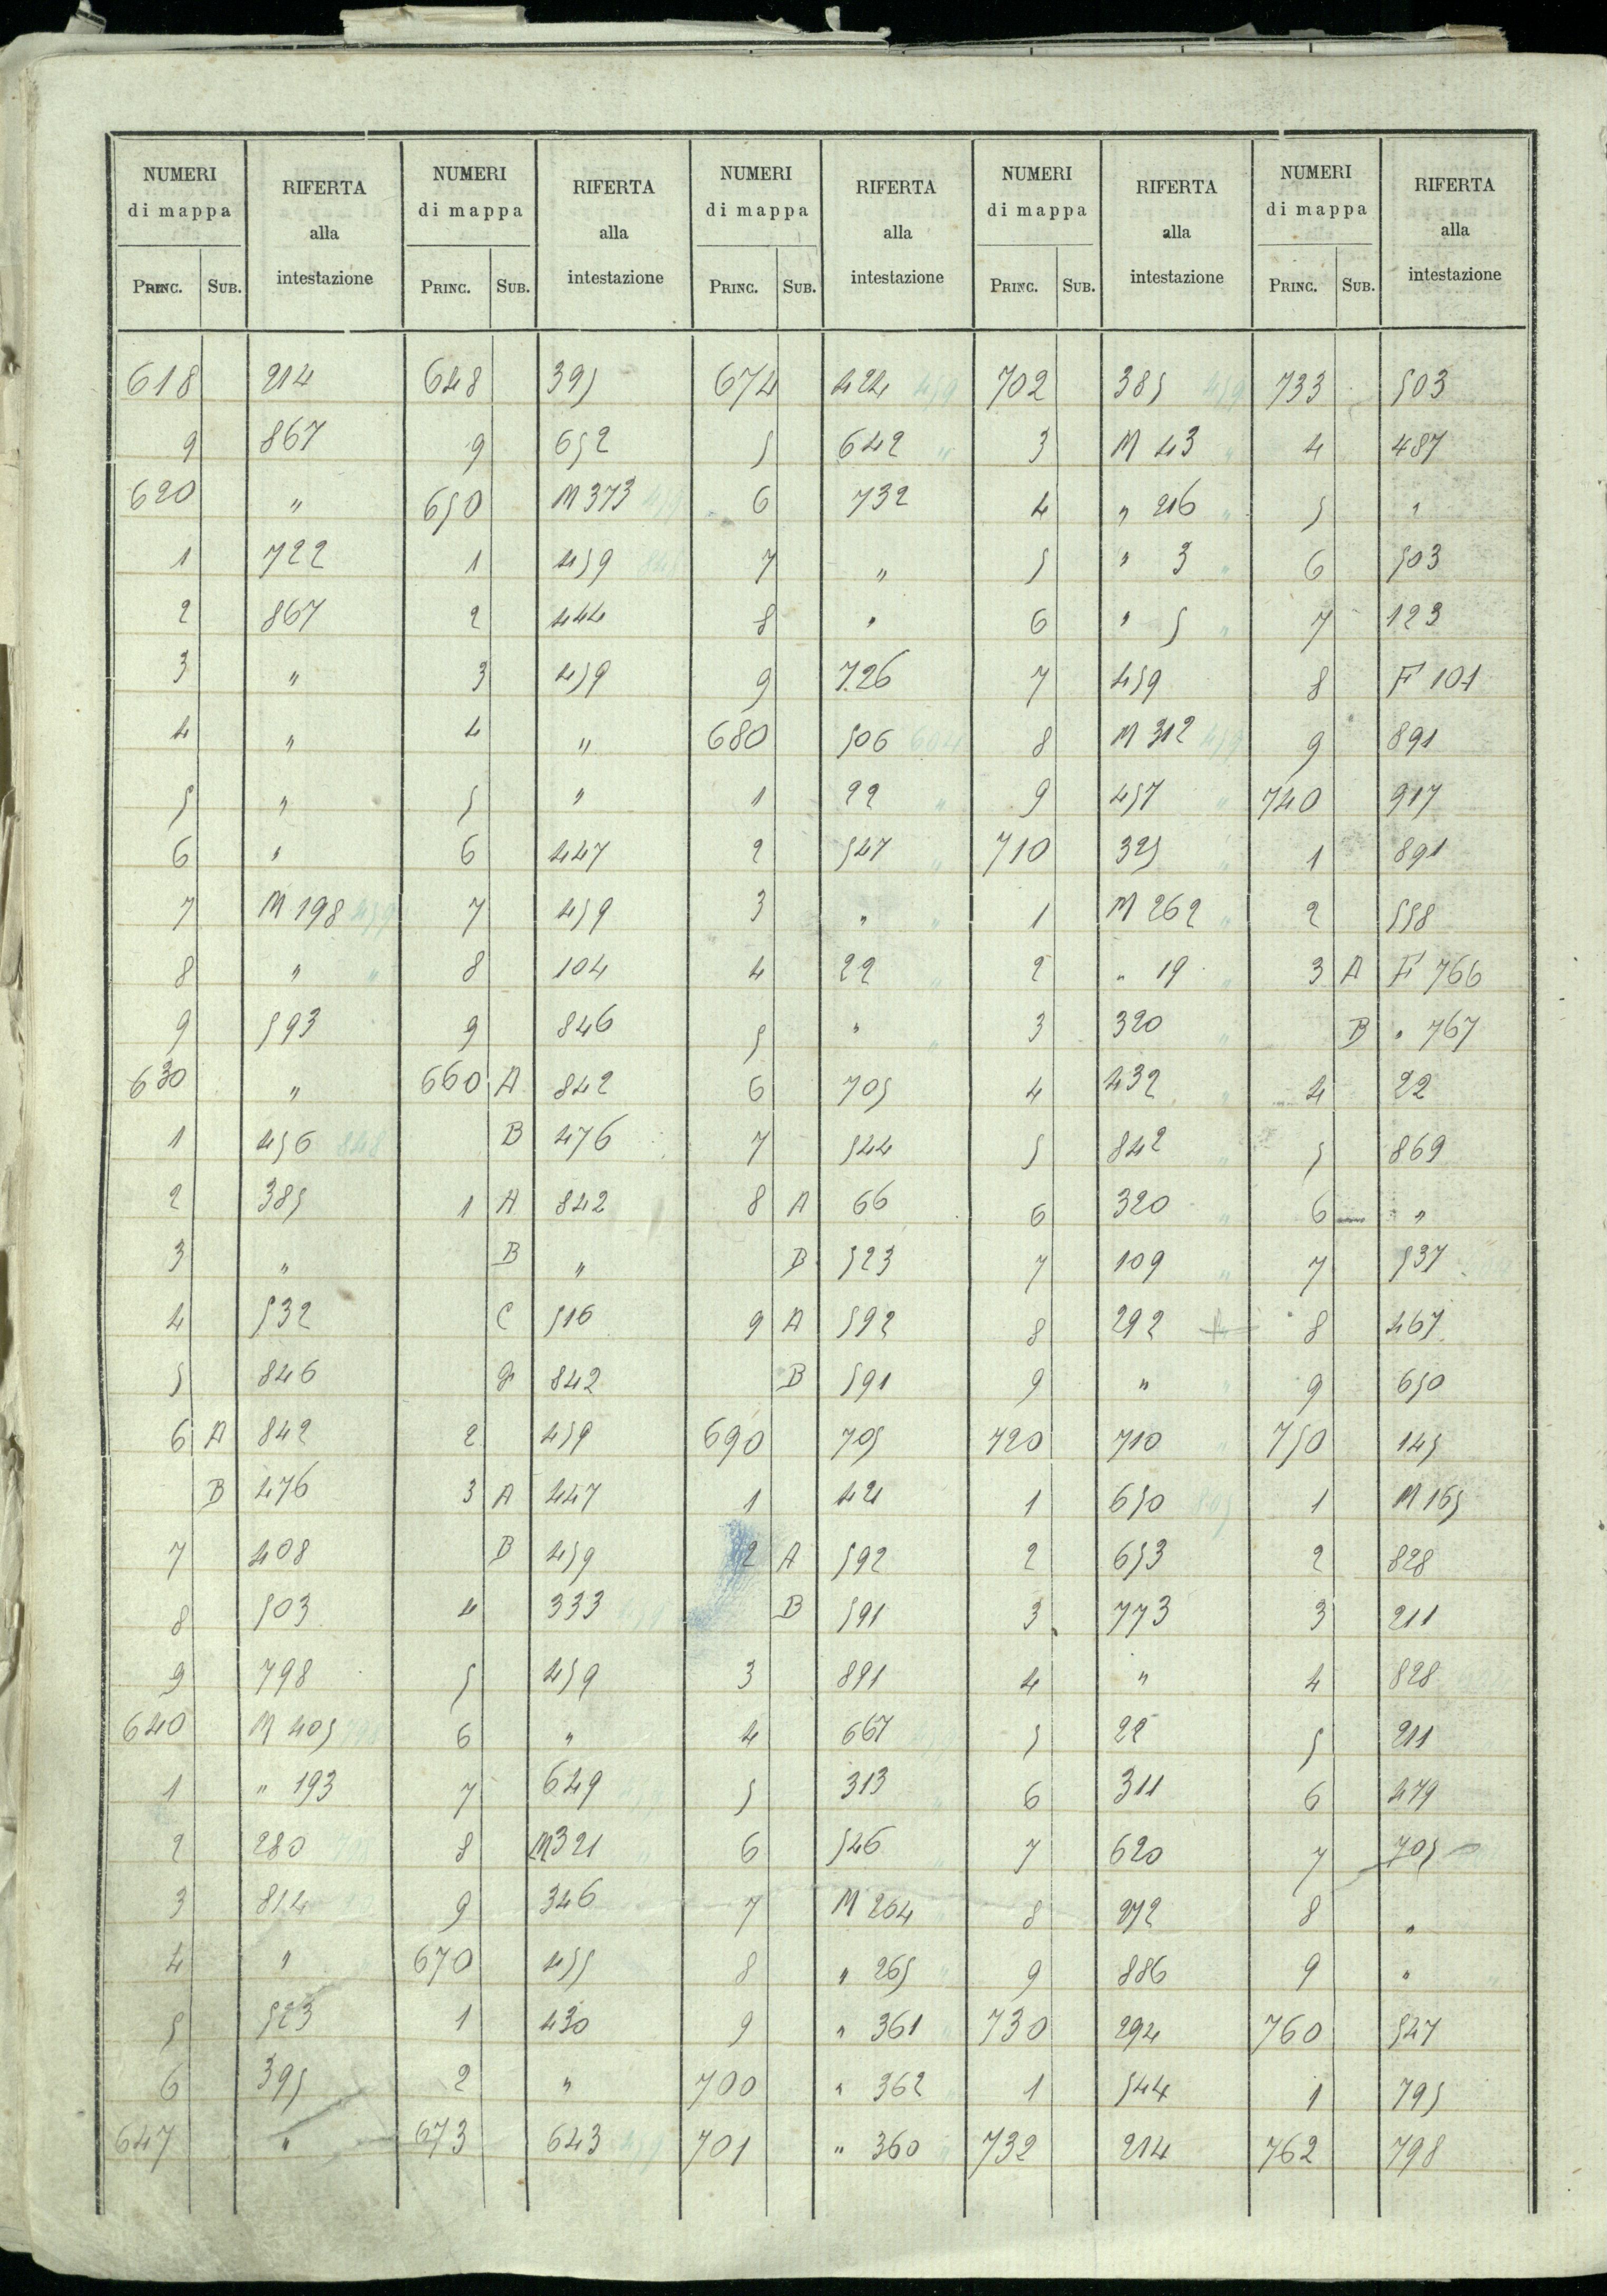 NUMERI RIFERTA NUMERI RIFERTA NUMERI RIFERTA NUMERI RIFERTA NUMERI RIFERTA
di mappa alla di mappa alla di mappa alla di mappa alla di mappa alla
PRINC. SUB. intestazione PRINC. SUB. intestazione PRINC. SUB. intestazione PRINC. SUB. intestazione PRINC. SUB. intestazione
618 214 648 395 674 424 459 702 385 459 733 503
9 867 9 652 5 642 " 3 M 43 " 4 487
620 " 650 M 373 459 6 732 4 " 216 " 5 "
1 722 1 459 7 " 5 " 3 " 6 503
2 867 2 444 8 " 6 " 5 " 7 123
3 " 3 459 9 726 7 459 8 F 101
4 " 4 " 680 506 604 8 M 312 459 9 891
5 " 5 " 1 22 " 9 457 " 740 917
6 " 6 447 2 547 " 710 325 " 1 891
7 M 198 459 7 459 3 " " 1 M 262 " 2 558
8 " " 8 104 4 22 " 2 " 19 " 3 A F 766
9 593 9 846 5 " " 3 320 " B " 767
630 " 660 A 842 6 705 4 432 " 4 22
1 456 848 B 476 7 544 5 842 " 5 869
2 385 1 A 842 8 A 66 6 320 " 6 "
3 " B " B 523 7 109 " 7 537
4 532 C 516 9 A 592 8 292 8 467
5 846 842 B 591 9 " " 9 650
6 A 842 2 459 690 705 720 710 " 750 145
B 476 3 A 447 1 421 1 650 805 1 M 165
7 408 B 459 2 A 592 2 653 2 828
8 503 4 333 459 B 591 3 773 3 211
9 798 5 459 3 891 4 " 4 828
640 M 405 798 6 " 4 667 459 5 22 5 211
1 " 193 7 649 459 5 313 " 6 311 6 479
2 280 798 8 M 321 " 6 546 " 7 620 7 705
3 814 9 346 7 M 264 8 272 8 "
4 " 670 455 8 " 265 " 9 886 9 "
5 523 1 430 9 " 361 " 730 294 760 547
6 395 2 " 700 " 362 " 1 544 1 795
647 " 673 643 459 701 " 360 " 732 214 762 798